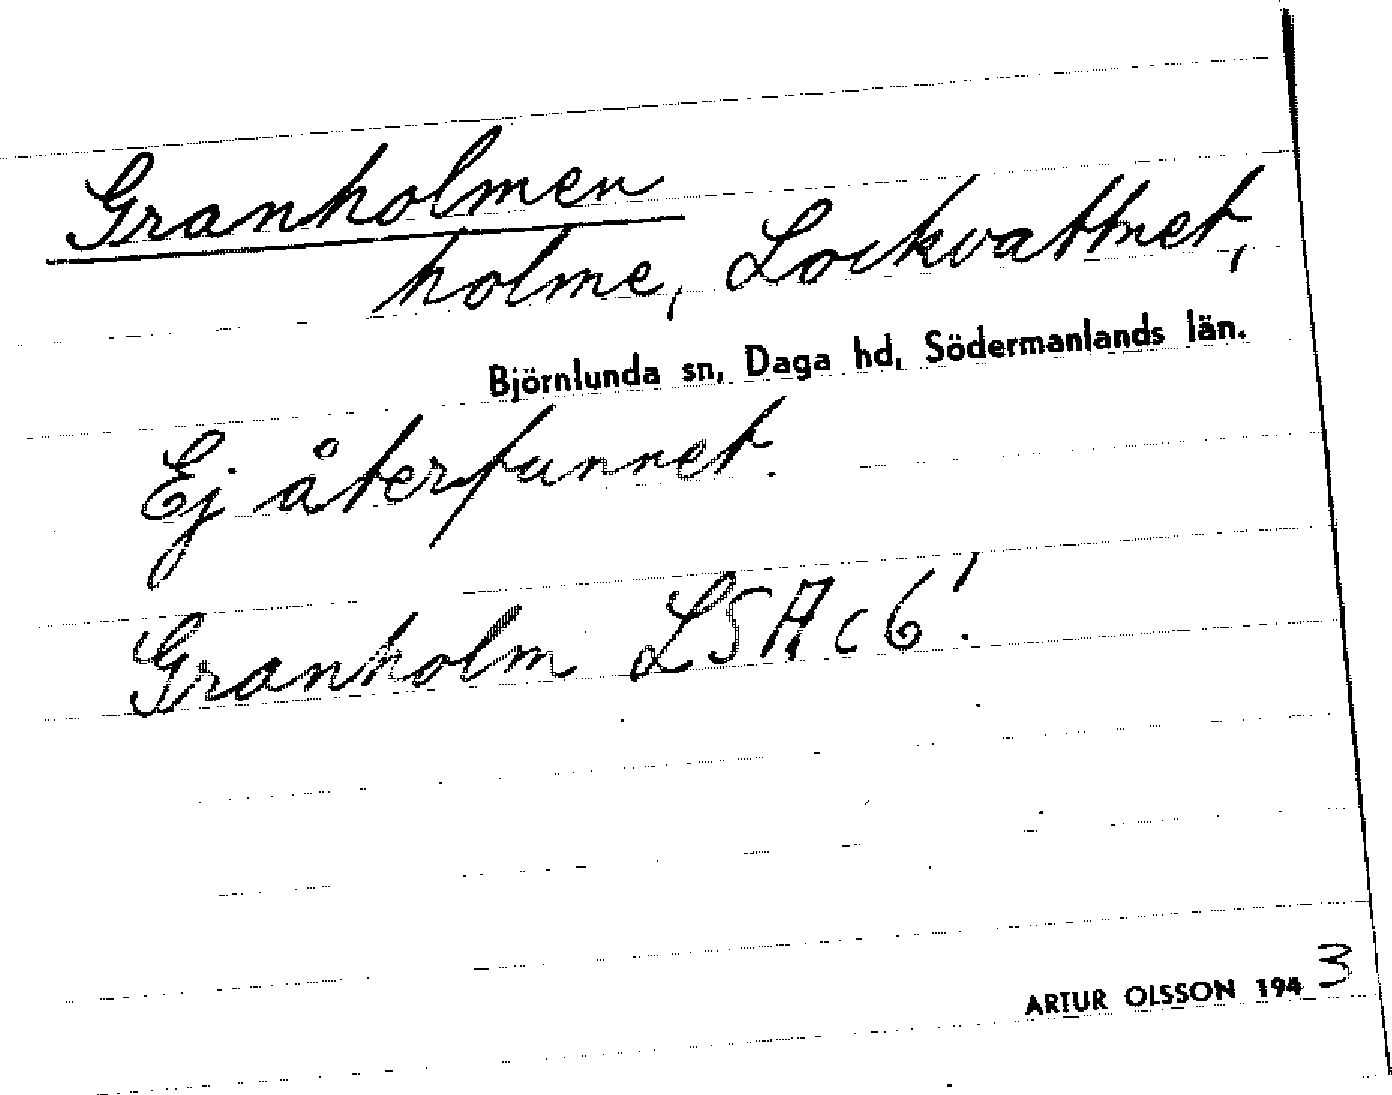 Granholmen
holme, Lockvattnet,
Björnlunda sn, Daga hd, Södermanlands län.
Ej återfunnet.
Granholm LSA c6!
ARTUR OLSSON 1943